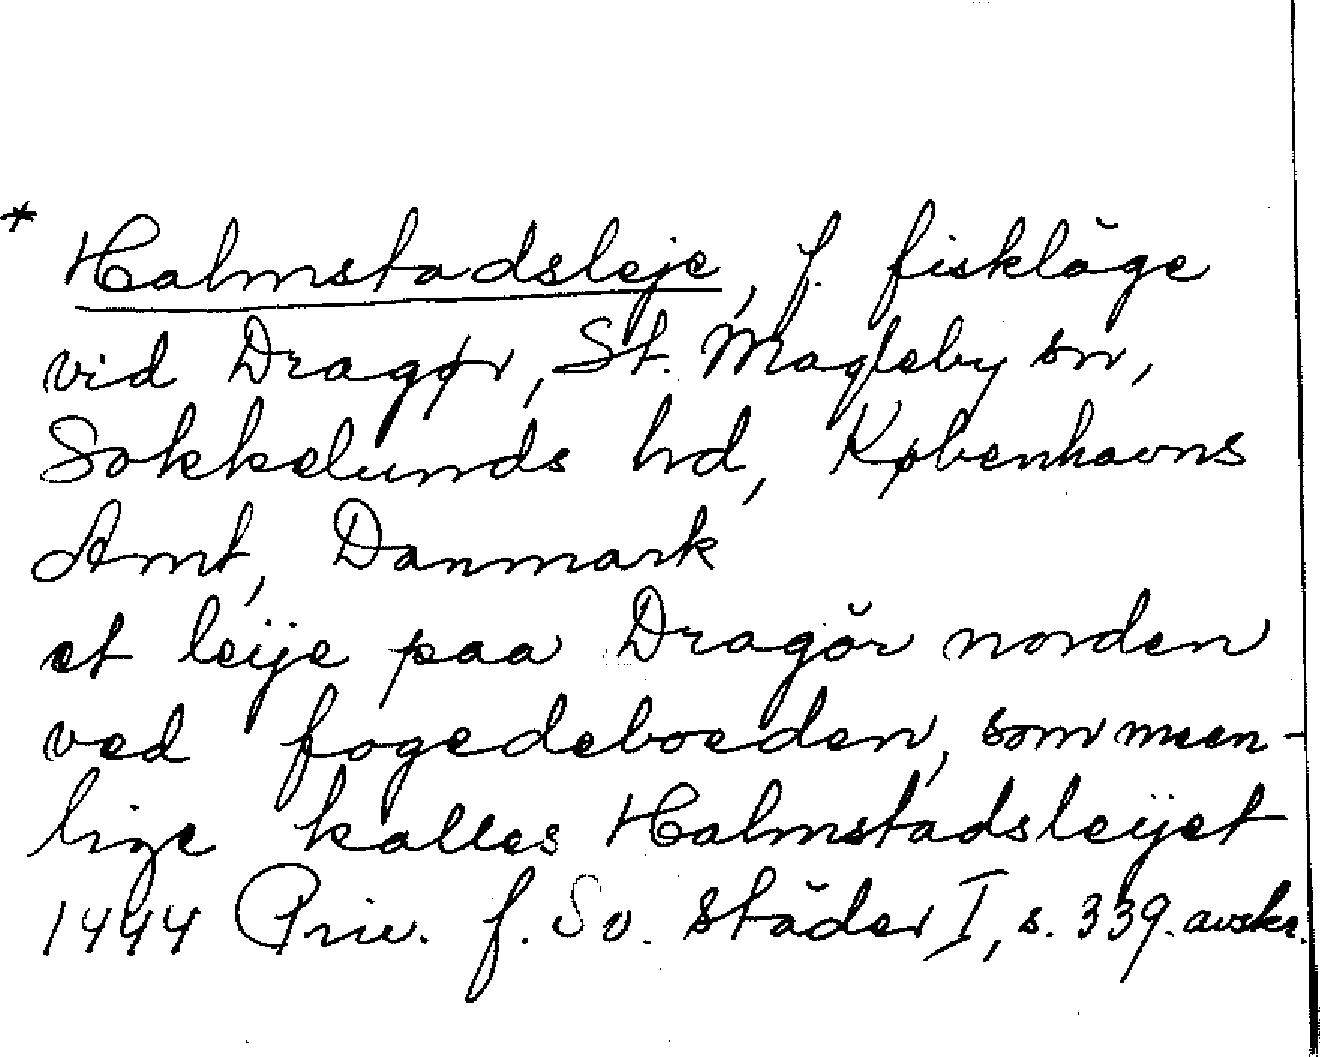 * Halmstadsleje, f. fiskläge
vid Dragør, St. Magleby sn,
Sokkelunds hd, Københavns
Amt, Danmark
et leije paa Dragör norden
ved fogedeboeden, som meen-
lige kalles Halmstadsleijet
1494 Priv. f. Sv. städer I, s. 339. avskr.